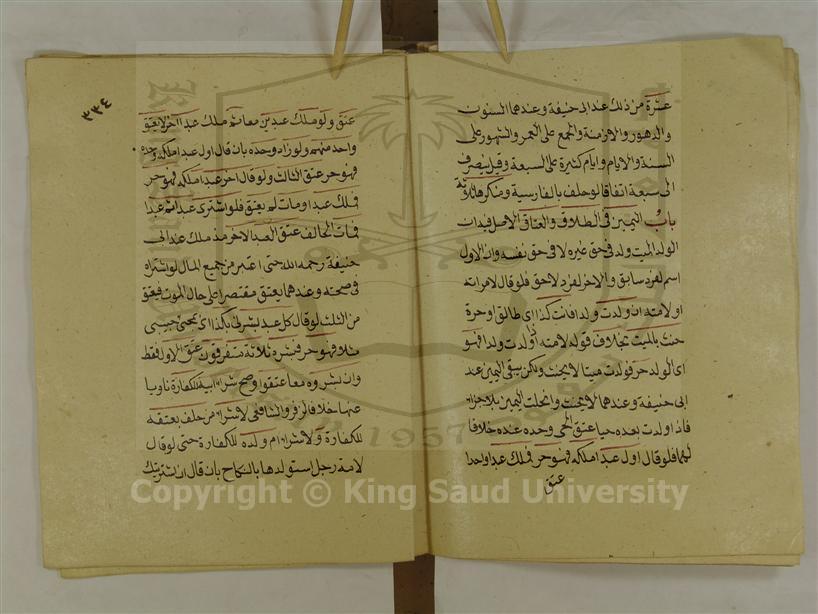 عشرة من ذلك عند ابى حنيفة وعندهما السنون
والدهور والازمنة والجمع على العمر والشهور على
السنة والايام وايام كثيرة على السبعة وقيل ينصرف
الى سبعة اتفاقا لو حلف بالفارسية ومنكرها ثلاثة
باب اليمين فى الطلاق والعتاق الاصل فيه ان
الولد الميت ولد فى حق غيره لا فى حق نفسه وان الاول
اسم لفرد سابق والاخر لفرد لاحق فلو قال لامراته
او لامته ان ولدت ولدا فانت كذا اى طالق او حرة
حنث بالميت بخلاف قوله لامته اذا ولدت ولدا فهو
اى الولد حر فولدت ميتا لا يحنث ولكن يبقى اليمين عند
ابى حنيفة وعندهما لا يحنث وانحلت اليمين بلا جزاء
فاذا ولدت بعده حيا عتق الحى وحده عنده خلافا
لهما فلو قال اول عبد املكه فهو حر فملك عبدا واحدا
عتق
٣٣٤
عتق ولو ملك عبدين معا ثم ملك عبدا آخر لا يعتق
واحد منهم ولو زاد وحده بان قال اول عبد املكه وحده
فهو حر عتق الثالث ولو قال اخر عبد املكه فهو حر
فملك عبدا ومات لم يعتق فلو اشترى عبدا ثم عبدا
فمات الحالف عتق العبد الاخر مذ ملك عند ابى
حنيفة رحمه الله حتى اعتبر من جميع المال لو اشتراه
فى صحته وعندهما يعتق مقتصرا على حال الموت فيعتق
من الثلث لو قال كل عبد بشرنى بكذا اى بمجئ حبيبى
مثلا فهو حر فبشره ثلاثة متفرقون عتق الاول فقط
وان بشروه معا عتقوا وصح شراء ابيه للكفارة ناويا
عنها خلافا لزفر والشافعى لا شراء من حلف بعتقه
للكفارة ولا شراء ام ولده للكفارة حتى لو قال
لامة رجل استولدها بالنكاح بان قال ان شتريتك
Copyright © King Saud University
1957